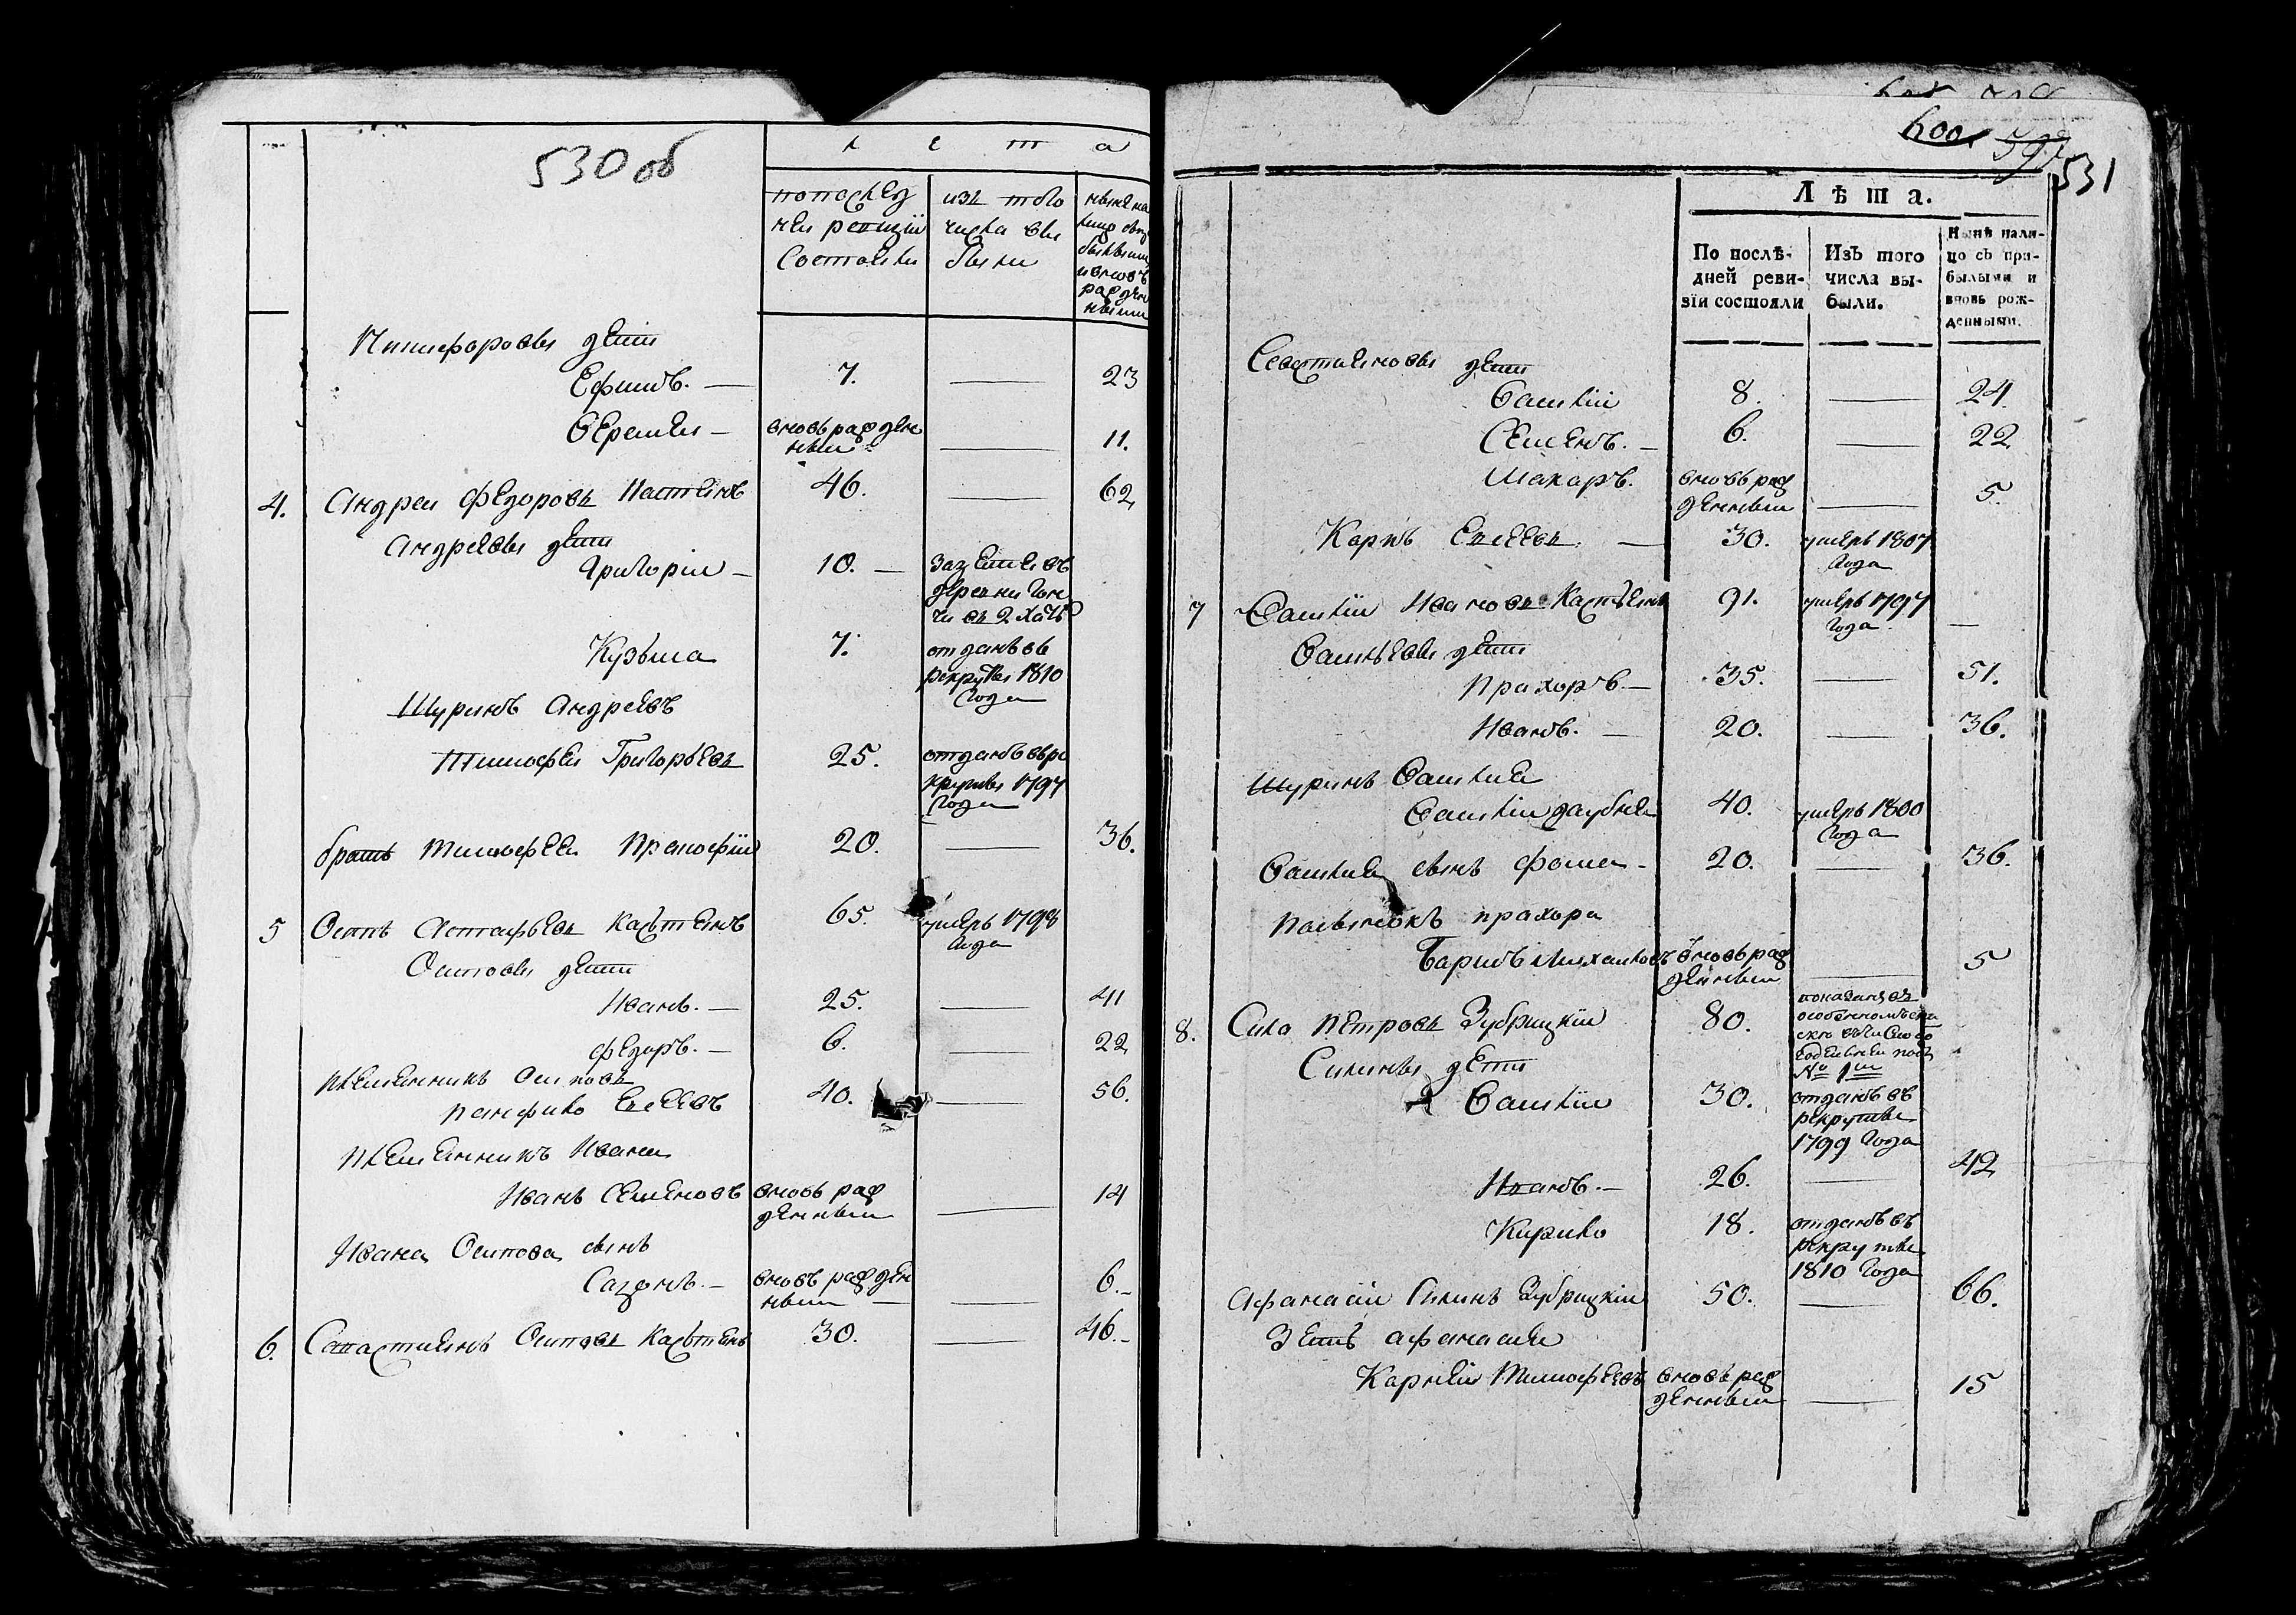 530 об
л е т а
попослед
неи ревизии
Состояли
изъ того
числа вы
были
ныне на
лицо съпри
былыми
ивновь
рожден
ными
Никифоровы дети
Ефимъ. — 7. — 23
Еремеи — вновь рожден
ныи — 11.
4. Андреи Федоровъ 46. — 62
Андреевы дети
Григории — 10. — зазетемъ въ
деревни
Кузьма 7. отданъ въ
рекруты 1810
года
Шуринъ Андреевъ
Тимофеи Григорьевъ 25. отданъ въ ре
круты 1797
года
братъ Тимофеевъ Пракофiи 20. — 36.
5 Осипъ Астафьевъ Касьтянъ 65. умеръ 1798
года
Осиповы дети
Иванъ. — 25. — 41
Федоръ. — 6. — 22
племянникъ Осиповъ
Панфило Евсеевъ 40. — 56.
племянникъ Ивана
Иванъ Семеновъ вновь рож
денныи — 14
Ивана Осипова сынъ
Сазонъ. — вновь рожден
ныи — 6.
6. Савастиянъ Осиповъ Касьтянъ 30. — 46.
600 531
Лѣта.
По послѣ-
дней реви-
зїи состояли
Изъ того
числа вы-
были.
Нынѣ нали-
цо съ при-
былыми и
вновь рож-
денными.
Севастияновы дети
Василiи 8. — 24.
Семенъ. — 6. — 22
Макаръ. вновь рож
денныи — 5.
Карпъ Евсеевъ. — 30. умеръ 1807
года
7 Василiи Ивановъ Кастьянъ 91. умеръ 1797
года —
Васильевы дети
Прахоръ. — 35. — 51.
Иванъ. — 20. — 36.
Шуринъ Василия
Василiи 40. умеръ 1800
года
Василия сынъ Фома — 20. — 36.
племянникъ Прахора
Барисъ Михаиловъ вновь рож
денныи — 5
8. Сила Петровъ Зубрицкiи 80. показанъ въ
особенномъ
подъ
№ 1м
Силины дети
Василiи 30. отданъ въ
рекруты
1799 года
Иванъ. — 26. — 42
Кирило 18. отданъ въ
рекруты
1810 года
Афанасiи Силинъ Зубрицкiи 50. — 66.
Зеть Афанасия
Карнеи Тимофеевъ вновь рож
денныи — 15